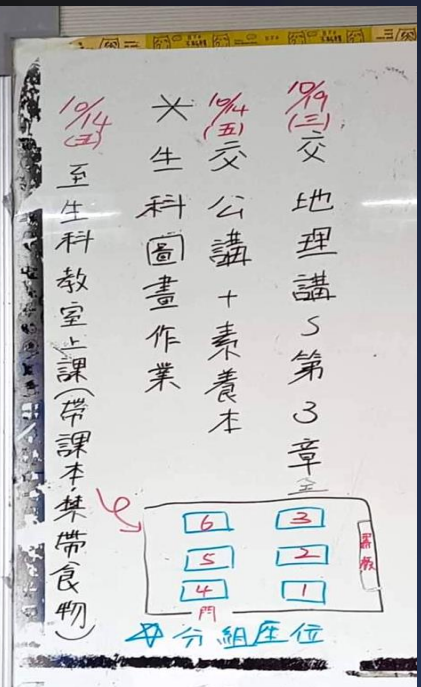 10/19(三)交 地理講S第3章
10/14(五)交公講+素養本
※生科圖畫作業
10/14(五)至生科教室上課(帶課本.禁帶食物)
6 3
5 2
4 1
黑板
門
☆分組座位